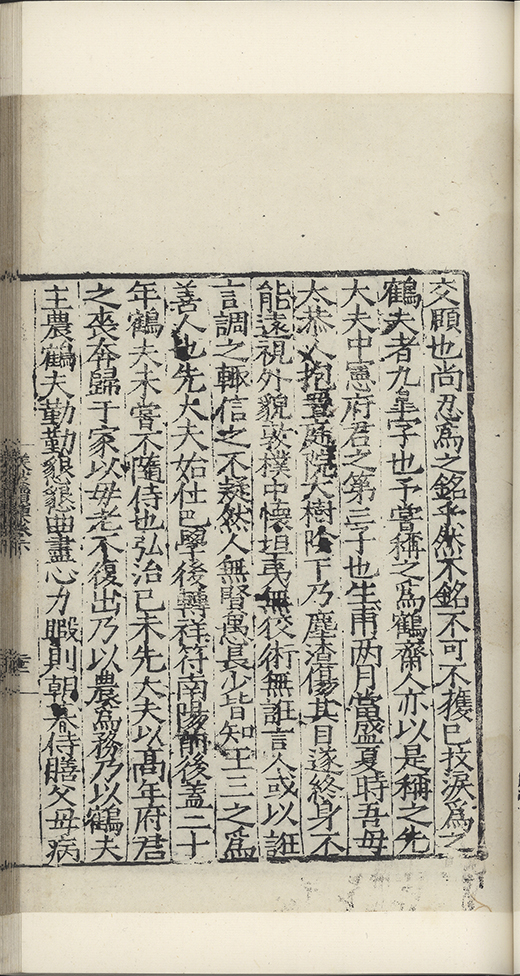 交願也尚忍為之銘乎然不銘不可不獲已抆淚為之
鶴夫者九臯字也予嘗稱之為鶴齋人亦以是稱之先
大夫中憲府君之第三子也生甫两月當盛夏時吾母
太恭人抱置庭院大樹陰下乃塵渣傷其目遂終身不
能遠視外貌敦樸中懷坦夷無狡術無誑言人或以誑
言調之輒信之不疑然人無賢愚長少皆知王三之為
善人也先大夫始仕巴學後轉祥符南陽前後蓋二十
年鶴夫未嘗不隨侍也弘治己未先大夫以髙年府君
之喪奔歸于家以毋老不復出乃以農為務乃以鶴夫
主農鶴夫勤勤懇懇曲盡心力暇則朝夕侍膳父母病